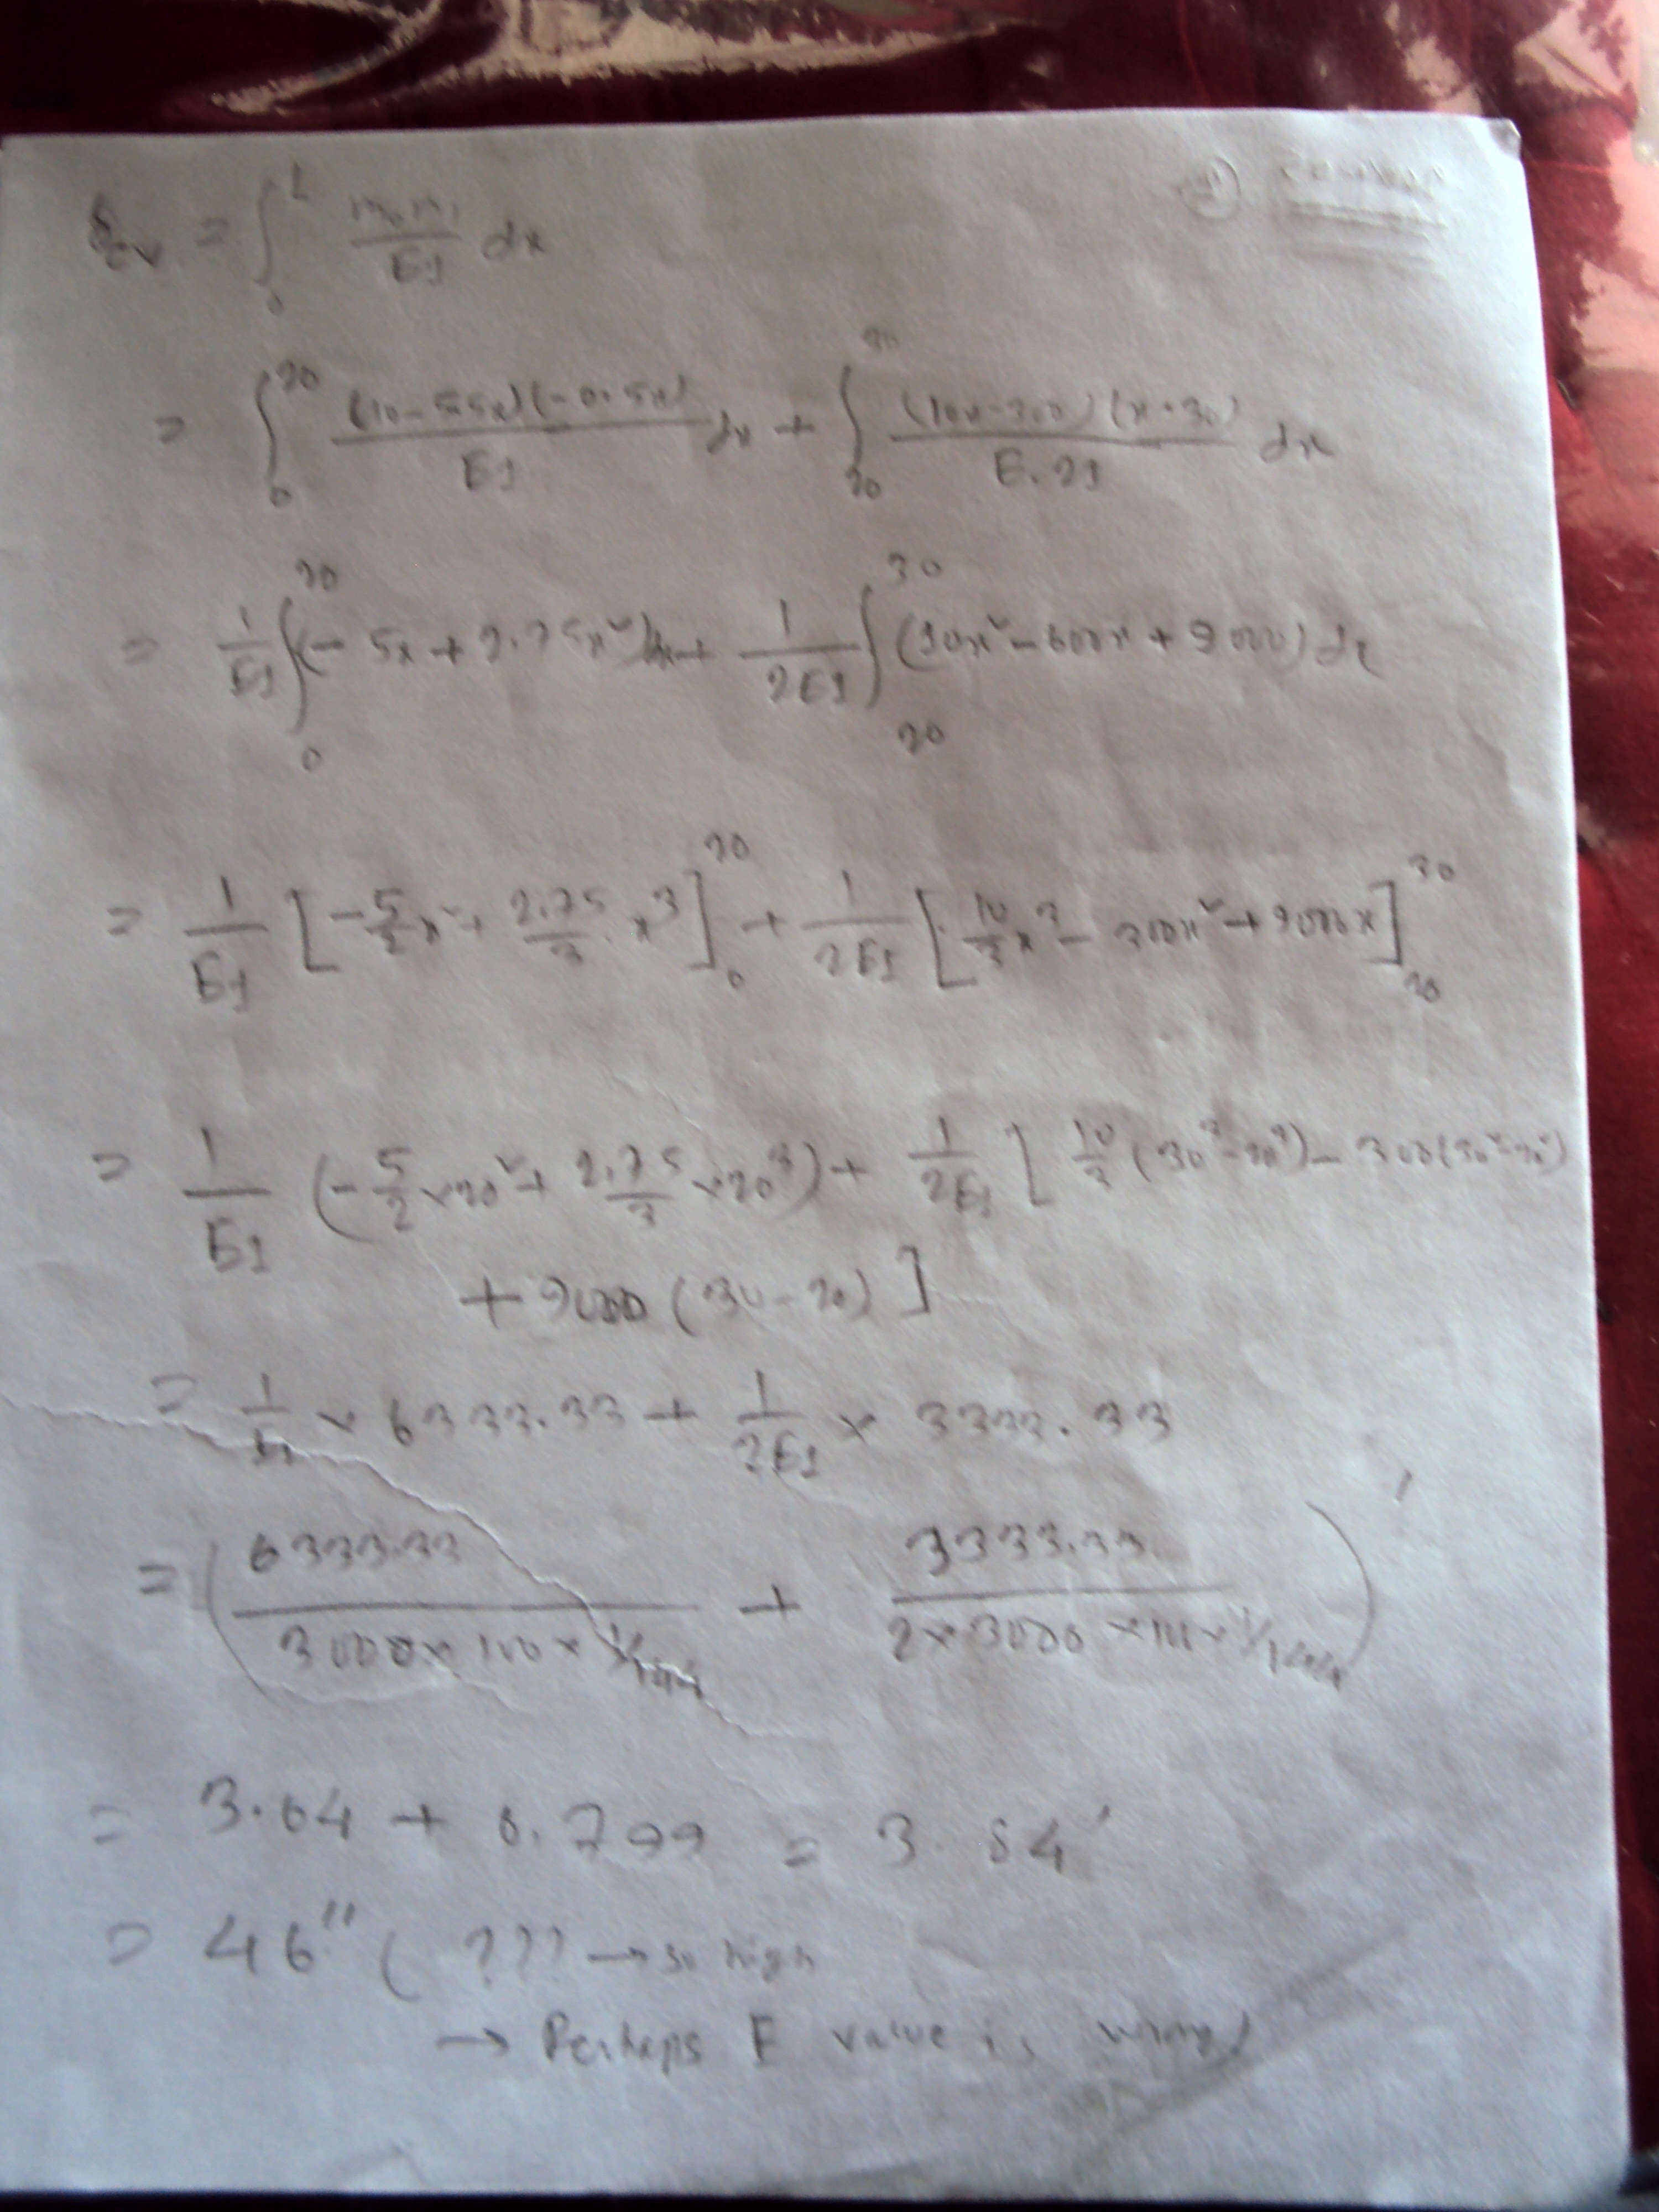 δ_cv = ∫₀^L m₀m₁/EI dx
= ∫₀^20 (10-5.5x)(-0.5x)/EI dx + ∫₂₀^30 (10x-300)(x-30)/E.2I dx
= 1/EI ∫₀^20 (-5x + 2.75x²)dx + 1/2EI ∫₂₀^30 (10x² - 600x + 9000) dx
= 1/EI [-5/2 x² + 2.75/3 . x³]₀^20 + 1/2EI [10/3 x³ - 300x² + 9000x]₂₀^30
= 1/EI (-5/2 × 20² + 2.75/3 × 20³) + 1/2EI [10/3 (30³-20³) - 300(30²-20²)
+ 9000 (30-20)]
= 1/EI × 6333.33 + 1/2EI × 3333.33
= (6333.33/(3000×100×1/144) + 3333.33/(2×3000×100×1/144))'
= 3.04 + 0.799 = 3.84'
= 46" ( ??? → so high
→ Perhaps E value is wrong)